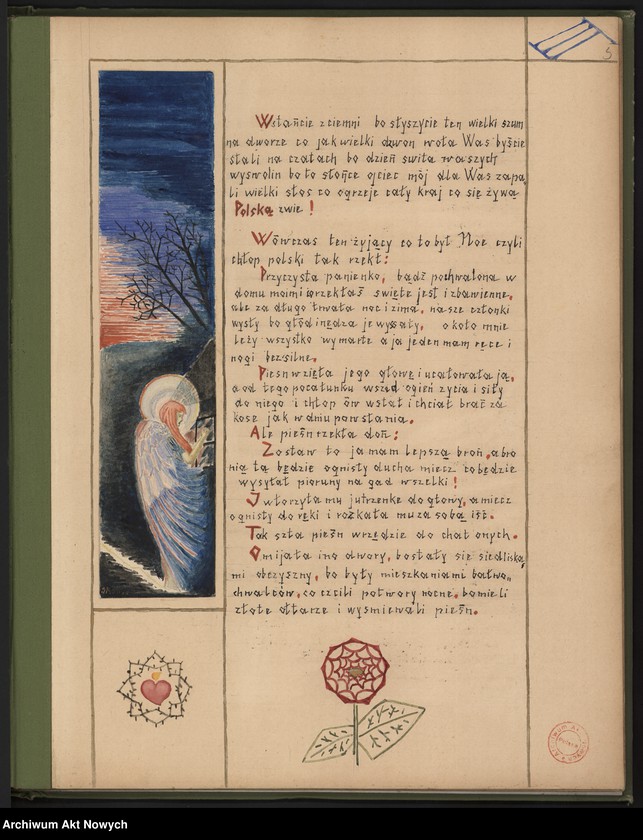 III 5
Wstańcie z ciemni bo słyszycie ten wielki szum
na dworze co jak wielki dzwon woła Was byście
stali na czatach bo dzień świta waszych
wyswolin bo to słońce ojciec mój dla Was zapa„
li wielki stos co ogrzeje cały kraj co się zywa
Polską zwie!
Wówczas ten żyjący co to był Noe czyli
chłop polski tak rzekł:
Przyczysta panienko, bądź pochwalona w
domu moim i coś rzekłaś święte jest i zbawienne,
ale za długo trwała noc i zima, nasze członki
wysty bo głód i nędza je wyssały, około mnie
leży wszystko wymarłe a ja jeden mam ręce i
nogi bezsilne.
Pieśń wzięła jego głowę i ucałowała ją,
a od tego pocałunku wszedł ogień życia i siły
do niego i chłop ów wstał i chciał brać za
kosę jak w dniu powstania.
Ale pieśń rzekła doń:
Zostaw to ja mam lepszą broń, a bro
nią tą będzie ognisty ducha miecz co będzie
wysyłał pioruny na gad wszelki!
I włożyła mu jutrzenkę do głowy, a miecz
ognisty do ręki i rozkała mu za sobą iść.
Tak szła pieśń wrzędzie do chat onych.
Omijała ino dwory, bo stały się siedliska„
mi obczyzny, bo były mieszkaniami bałwo„
chwalców, co czcili potwory nocne, bo mieli
złote ołtarze i wyśmiewali pieśń.
Archiwum Akt Nowych